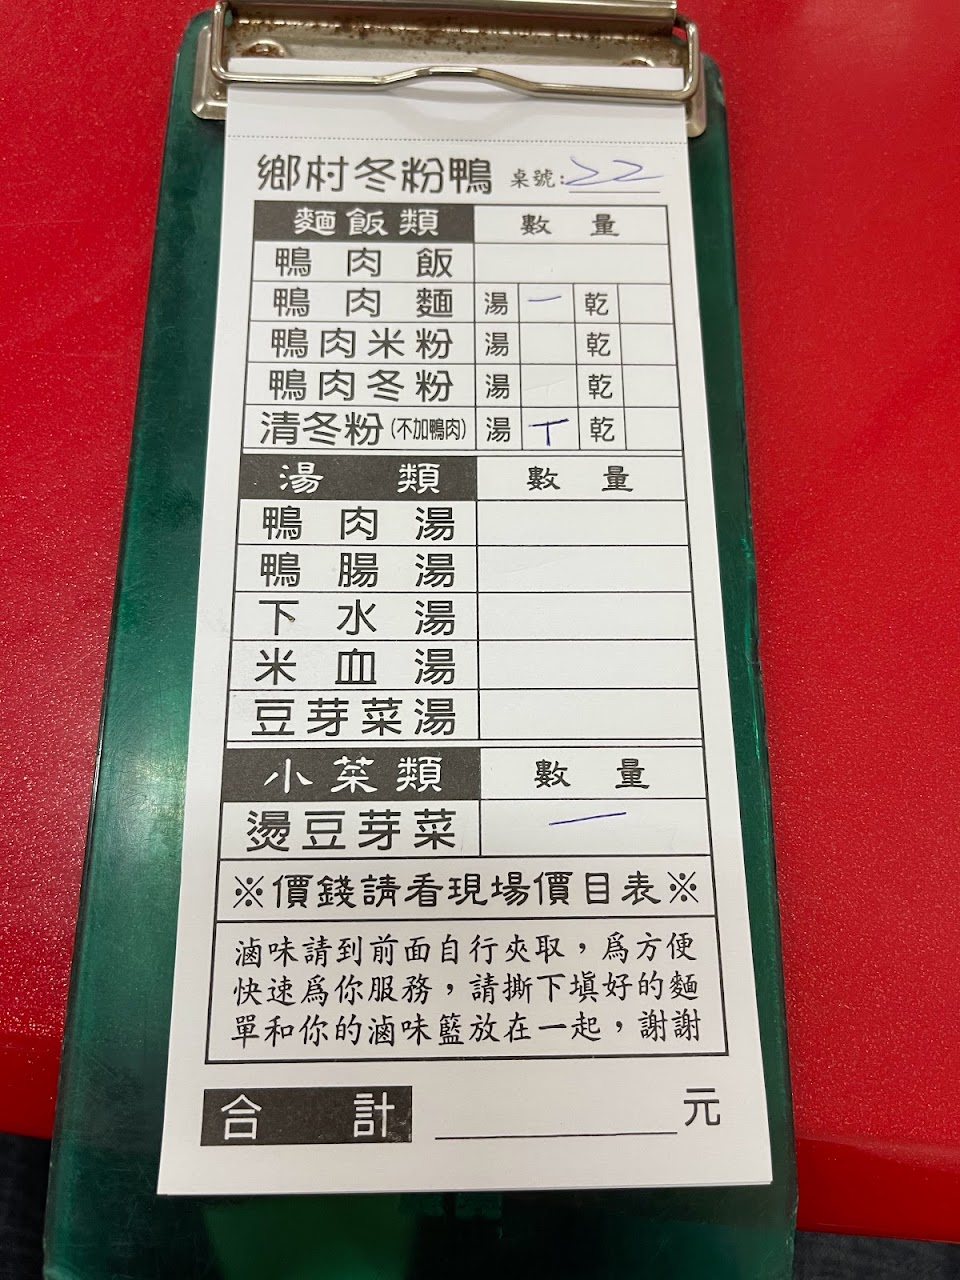 鄉村冬粉鴨 桌號:22
麵飯類 數量
鴨肉飯
鴨肉麵 湯 一 乾
鴨肉米粉 湯 乾
鴨肉冬粉 湯 乾
清冬粉(不加鴨肉) 湯 丅 乾
湯類 數量
鴨肉湯
鴨腸湯
下水湯
米血湯
豆芽菜湯
小菜類 數量
燙豆芽菜 一
※價錢請看現場價目表※
滷味請到前面自行夾取，為方便
快速為你服務，請撕下填好的麵
單和你的滷味籃放在一起，謝謝
合計 元